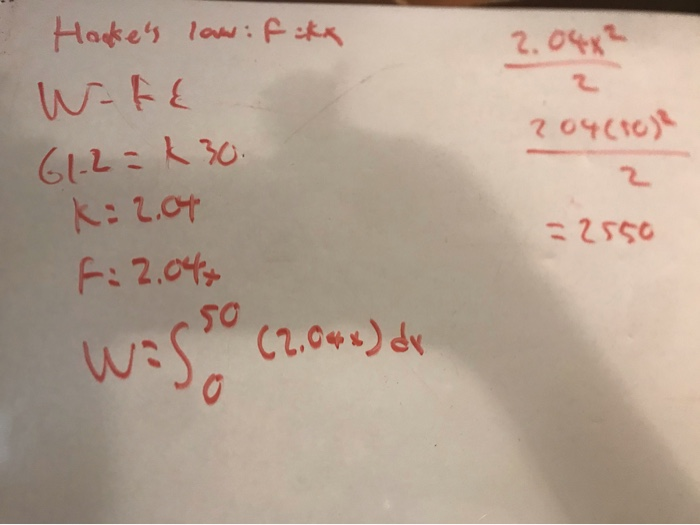 Hooke's law: F=kx
W= F E
61.2 = k 30.
k= 2.04
F= 2.04x
W= ∫₀⁵⁰ (2.04x) dx
2.04x²
2
2.04(50)²
2
= 2550